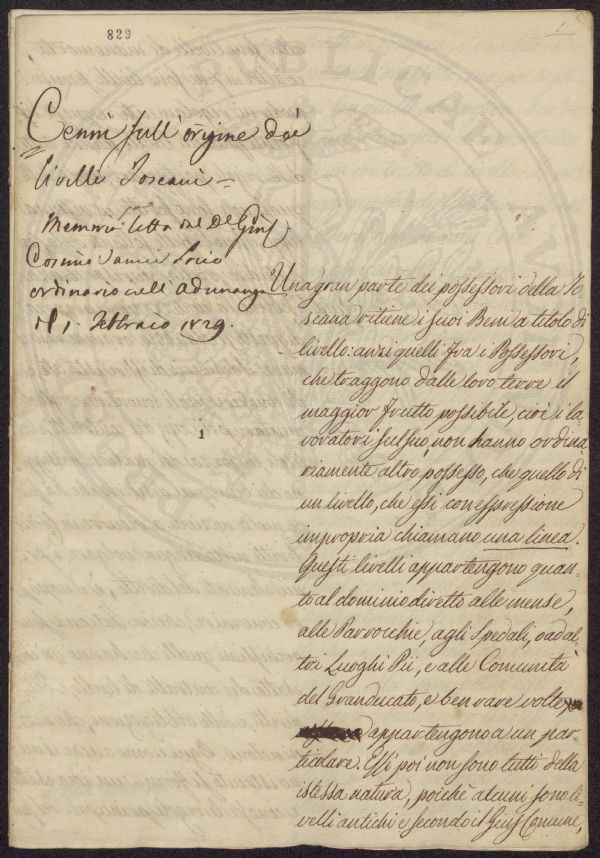 829
1
Cenni sull'origine dei
livelli Toscani =
Memoria letta dal De Giu
Cosimo Vanni Socio
ordinario nell'adunanza
del 1. Febbraio 1829.
1
Una gran parte dei possessori della To
scana ritiene i suoi Beni a titolo di
livello: anzi quelli fra i Possessori,
che traggono dalle loro terre il
maggior frutto possibile, cioè i la
voratori sul suo, non hanno ordina
riamente altro possesso, che quello di
un livello, che essi con espressione
impropria chiamano una linea.
Questi livelli appartengono quan
to al dominio diretto alle mense,
alle Parrocchie, agli Spedali, o ad al
tri Luoghi Pii, e alle Comunità
del Granducato, e ben rare volte
appartengono a un par
ticolare. Essi poi non sono tutti della
istessa natura, poichè alcuni sono li
velli antichi e secondo il Gius Comune,